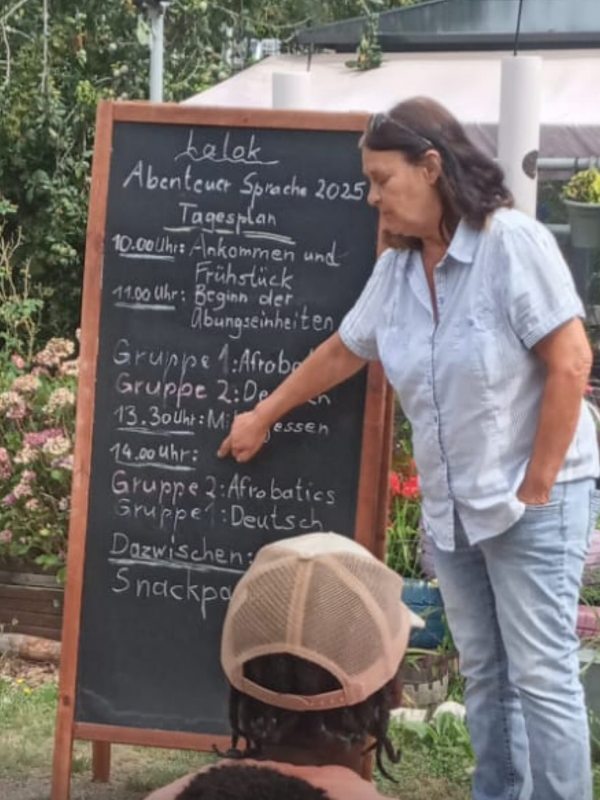 Lalok
Abenteuer Sprache 2025
Tagesplan
10.00 Uhr: Ankommen und
Frühstück
11.00 Uhr: Beginn der
Übungseinheiten
Gruppe 1: Afrob
Gruppe 2: De
13.30 Uhr: Mi gessen
14.00 Uhr:
Gruppe 2: Afrobatics
Gruppe 1: Deutsch
Dazwischen:
Snackpa